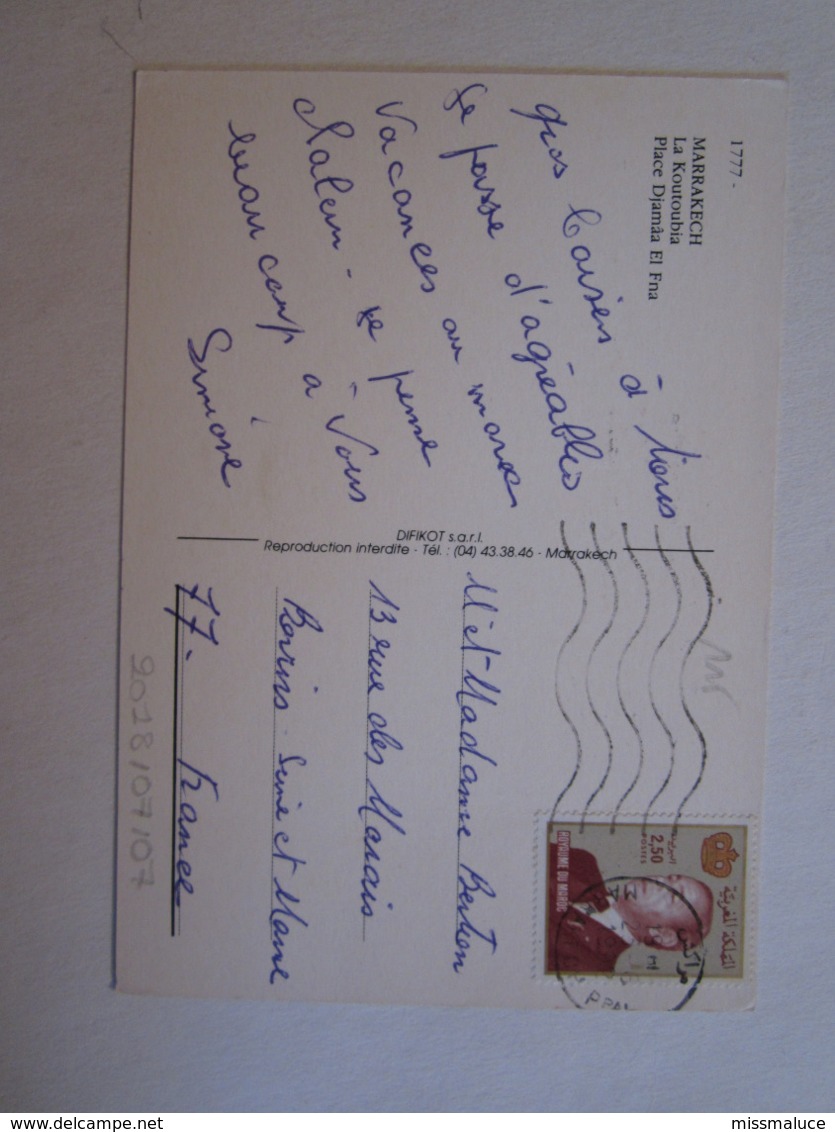 1777 -
MARRAKECH
La Koutoubia
Place Djamâa El Fna
gros baisers à vous
Je passe d'agréables
vacances au maroc
chaleur - Je pense
beaucoup à vous
Simone
DIFIKOT s.a.r.l.
Reproduction interdite - Tél. : (04) 43.38.46 - Marrakech
M. et Madame
13 rue des Marais
Seine et Marne
77. France
2018/07/07
المملكة المغربية
البريد
2,50
POSTES
ROYAUME DU MAROC
مراكش
delcampe.net
missmaluce